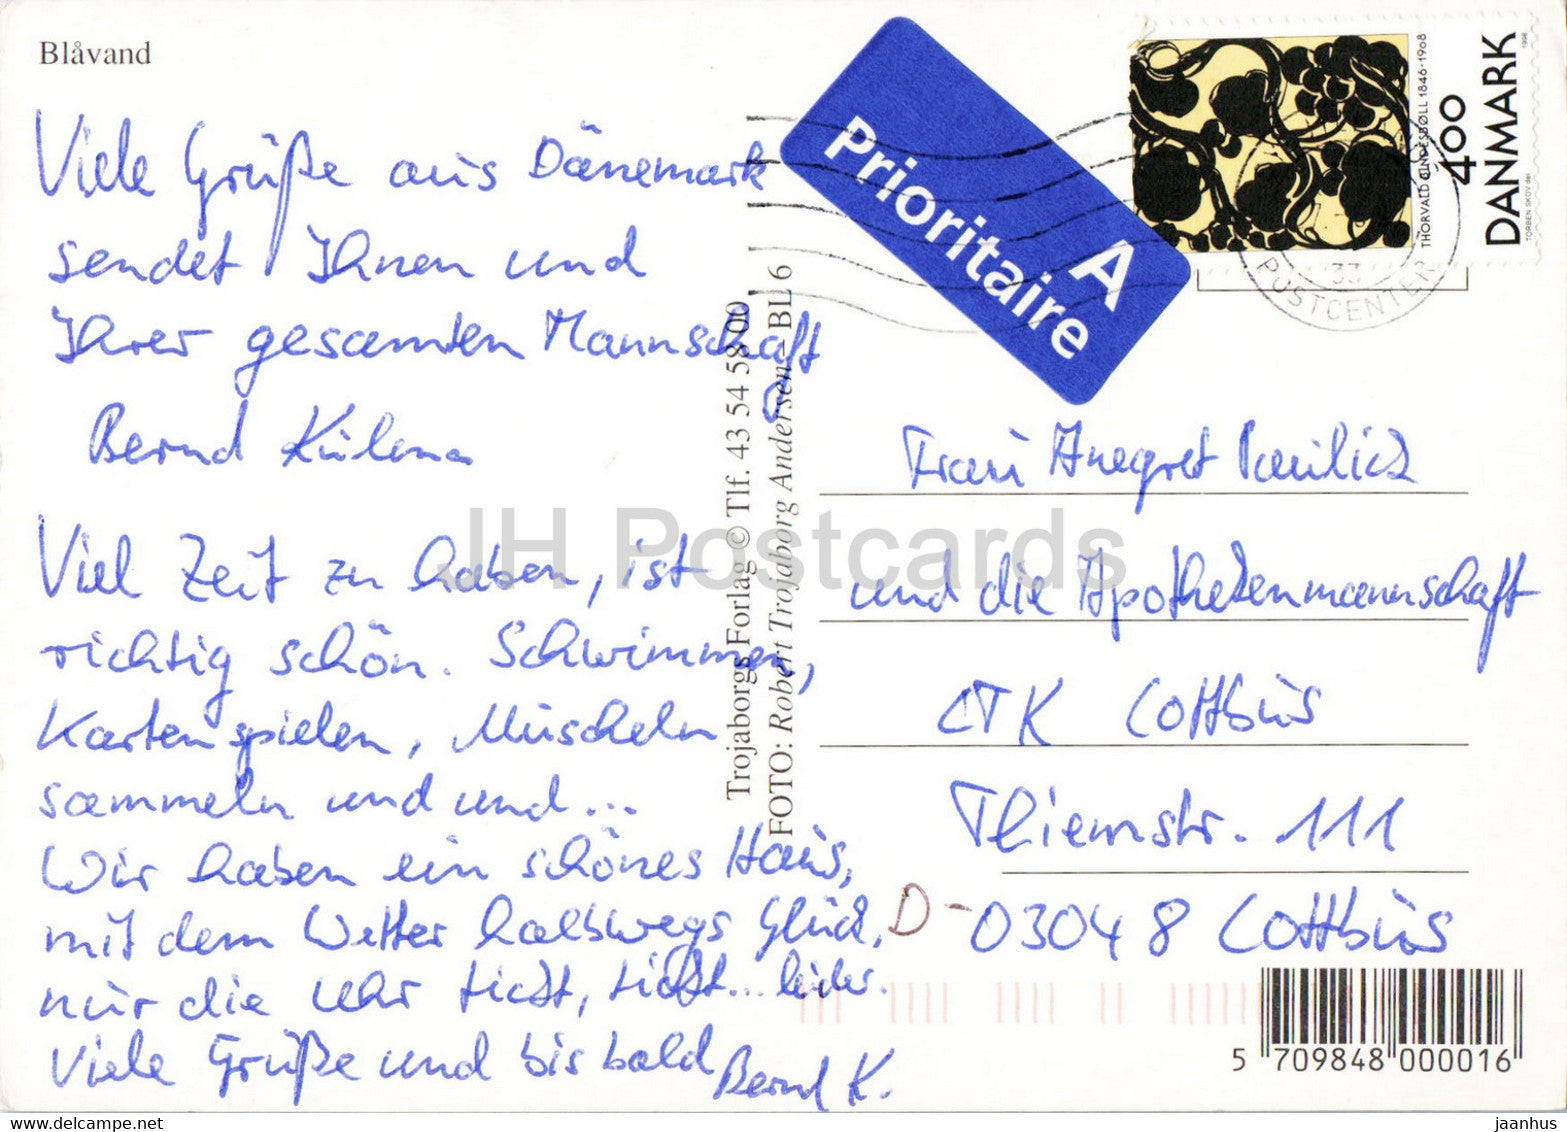 Blåvand
Viele Grüße aus Dänemark
sendet Ihnen und
Ihrer gesamten Mannschaft
Bernd
Viel Zeit zu haben, ist
richtig schön. Schwimmen,
Karten spielen, Muscheln
sammeln und und...
Wir haben ein schönes Haus,
mit dem Wetter halbwegs Glück,
nur die Uhr tickt, tickt... leider.
Viele Grüße und bis bald
Bernd K.
Trojaborgs Forlag © Tlf. 43 54 58 00
FOTO: Robert Trojaborg Andersen - BL 6
A
Prioritaire
THORVALD BINDESBØLL 1846-1908
400
DANMARK
1996
TORBEN SKOV del.
33
POSTCENTER
Frau Anegret
und die Apothekenmannschaft
CTK Cottbus
Thiemstr. 111
D-03048 Cottbus
5 709848 000016
JH Postcards
jaanhus